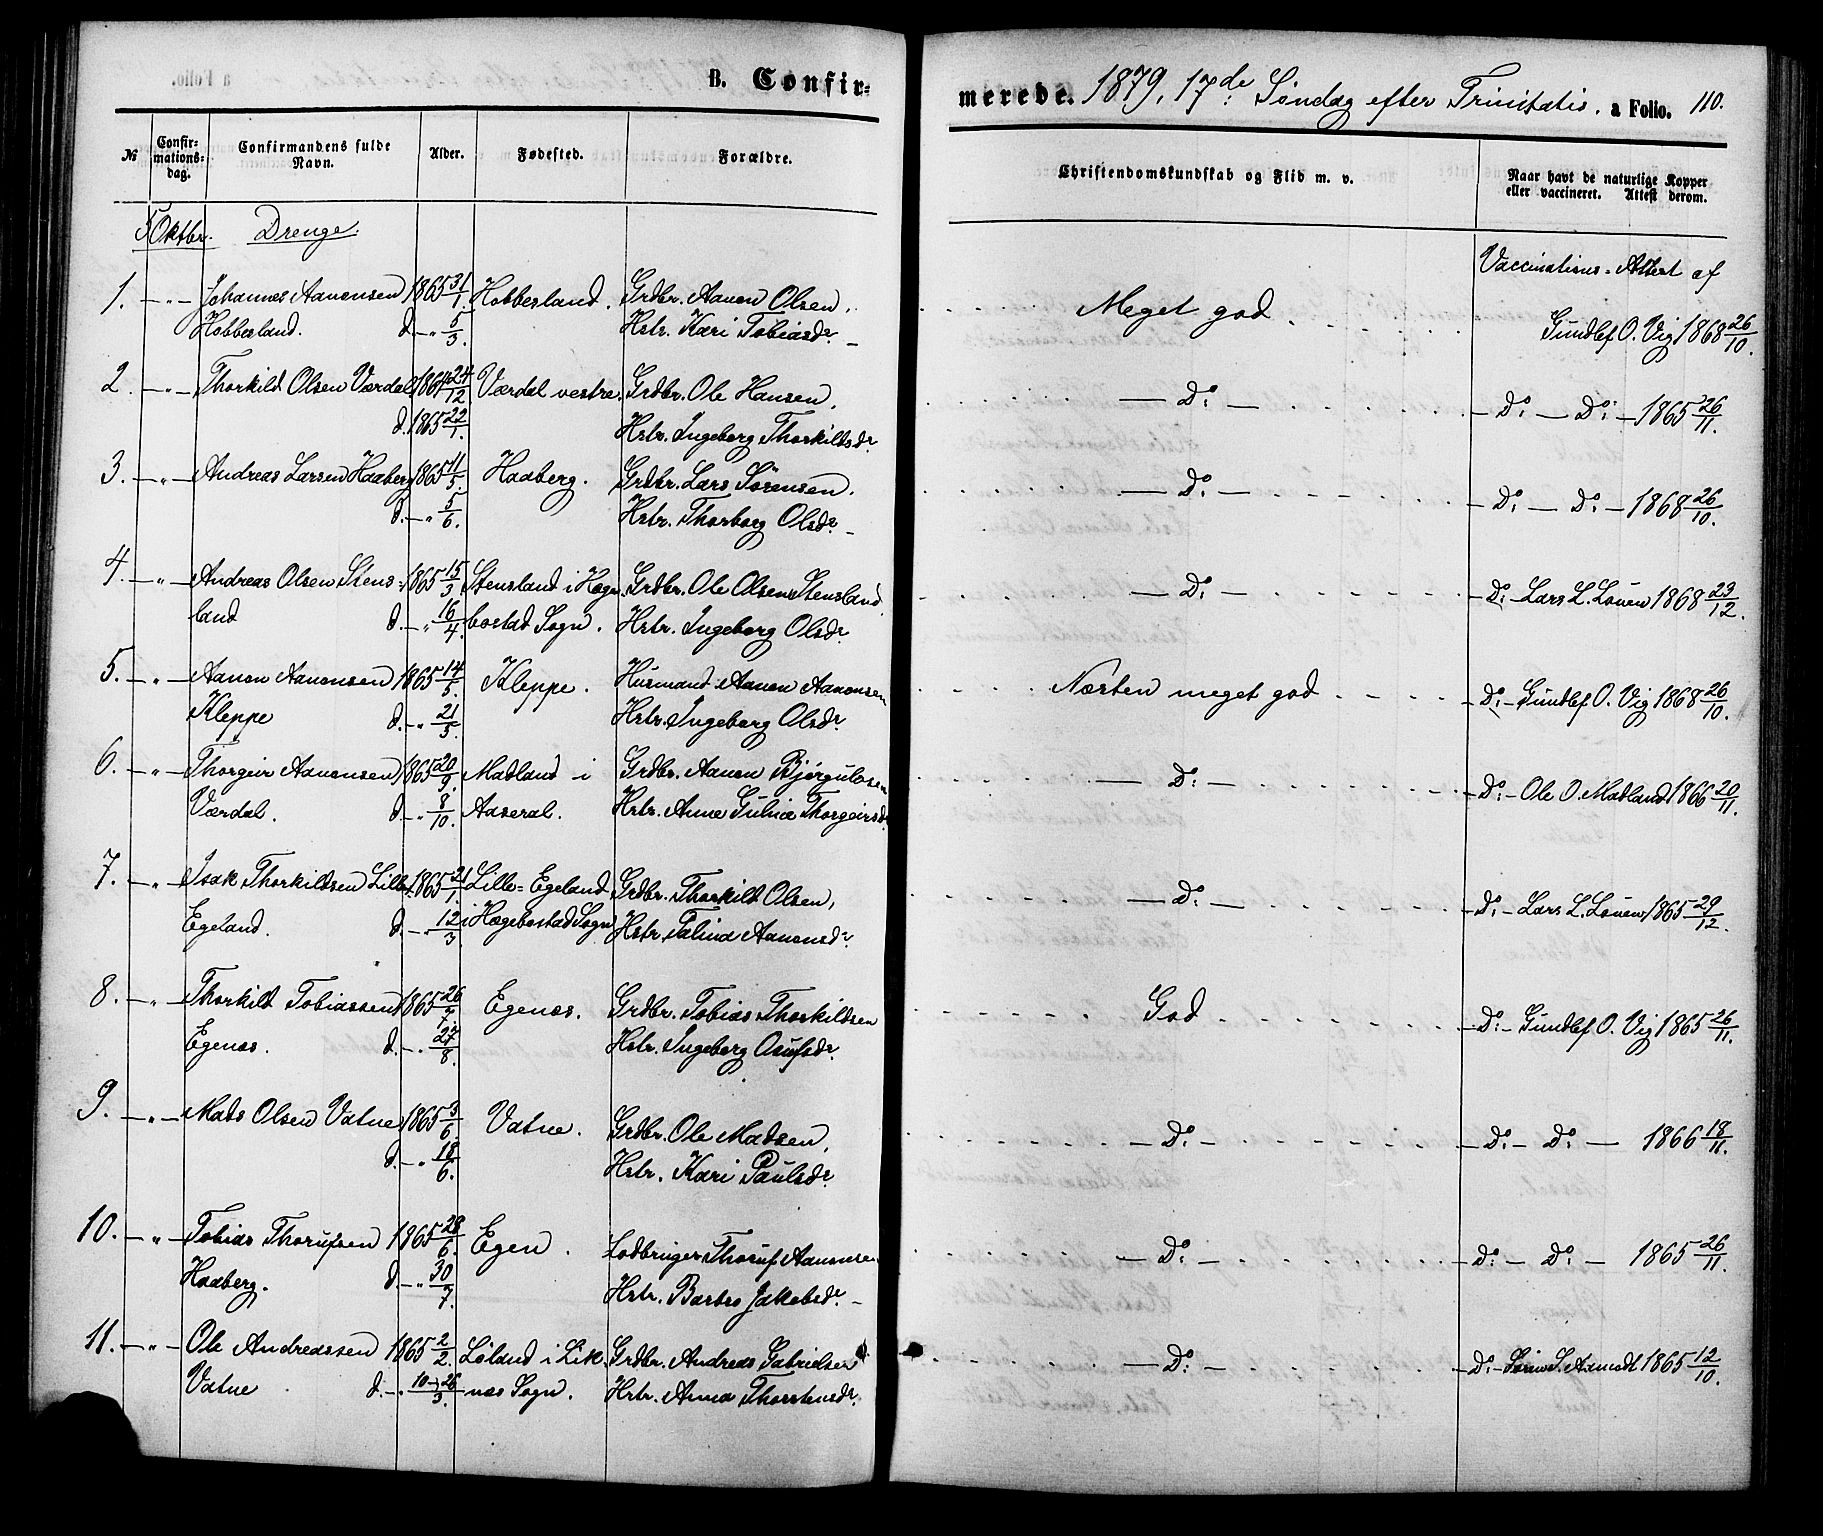 B. Confir-
merede. 1879, 17de Søndag efter Trinitatis. a Folio. 110.
№ Confirmations-dag. Confirmandens fulde Navn. Alder. Fødested. Forældre. Christendomskundskab og Flid m. v. Naar havt de naturlige Kopper eller vaccineret. Attest derom.
5 Oktbr. Drenge.
Vaccinations-Attest af
1. — " — Johannes Aanensen 1865 31/1. Hobbesland. Grdbr. Aanen Olsen, Meget god
Hobbesland. d. — " 5/3. Hstr. Kari Tobiasdr. Gundlef O. Vig 1868 26/10.
2. — " — Thorkild Olsen Værdal 1864 24/12 Værdal vestre. Grdbr. Ole Hansen, — Do: — — Do: — Do: — 1865 26/11.
d. 1865 22/1. Hstr. Ingeborg Thorkildsdr
3. — " — Andreas Larsen Haaberg 1865 11/5. Haaberg. Grdbr. Lars Sørensen, — Do: — — Do: — Do: — 1868 26/10.
d. — " 5/6. Hstr. Thorborg Olsdr. —
4. — " — Andreas Olsen Stens- 1865 15/3 Stensland i Hæge- Grdbr. Ole Olsen Stensland, — Do: — Do: — Lars L. Lauen 1868 23/12.
land d. — " 16/4. bostad Sogn. Hstr. Ingeborg Olsdr.
5. — " — Aanen Aanensen 1865 14/5. Kleppe. Husmand Aanen Aanensen Næsten meget god — Do: — Gundlef O. Vig 1868 26/10.
Kleppe d. — " 21/5. Hstr. Ingeborg Olsdr.
6. — " — Thorgeir Aanensen 1865 20/9. Madland i Grdbr. Aanen Bjørgulvsen — Do: — — Do: — Ole O. Madland 1866 20/11.
Værdal. d. — " 8/10. Aaseral. Hstr. Anne Guline Thorgeirsdr.
7. — " — Isak Thorkildsen Lille- 1865 21/1. Lille-Egeland Grdbr. Thorkild Olsen, — Do: — — Do: — Lars L. Lauen 1865 29/12.
Egeland. d. — " 12/3 i Hægebostad Sogn Hstr. Talina Aanensdr.
8. — " — Thorkild Tobiassen 1865 26/7. Egenæs. Grdbr. Tobias Thorkildsen God — Do: — Gundlef O. Vig 1865 26/11.
Egenæs. d. — " 27/8. Hstr. Ingeborg Asulfsdr.
9. — " — Mads Olsen Vatne 1865 3/6. Vatne. Grdbr. Ole Madsen, — Do: — — Do: — Do: — 1866 18/11.
d. — " 18/6. Hstr. Kari Paulsdr.
10. — " — Tobias Thorufsen 1865 28/6. Egen. Lodbruger Thoruf Aanensen — Do: — — Do: — Do: — 1865 26/11.
Haaberg. d. — " 30/7. Hstr. Barbro Jakobsdr. —
11. — " — Ole Andreassen 1865 2/2. Løland i Lik- Grdbr. Andreas Gabrielsen — Do: — — Do: — S. Aamodt 1865 12/10.
Vatne d. — " 26/3. næs Sogn. Hstr. Anna Thorstensdr.